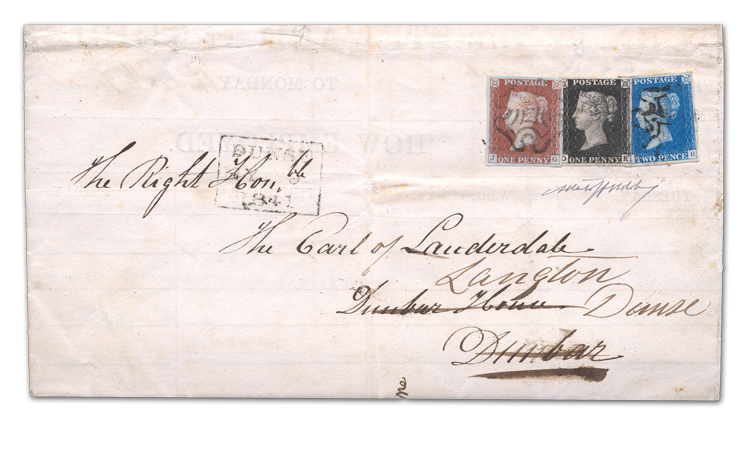 TO MONDAY
HOW
POSTAGE POSTAGE POSTAGE
ONE PENNY ONE PENNY TWO PENCE
DUNSE
1841
The Right Hon,ble
The Earl of Lauderdale
Langton
Dunbar House Dunse
Dunbar